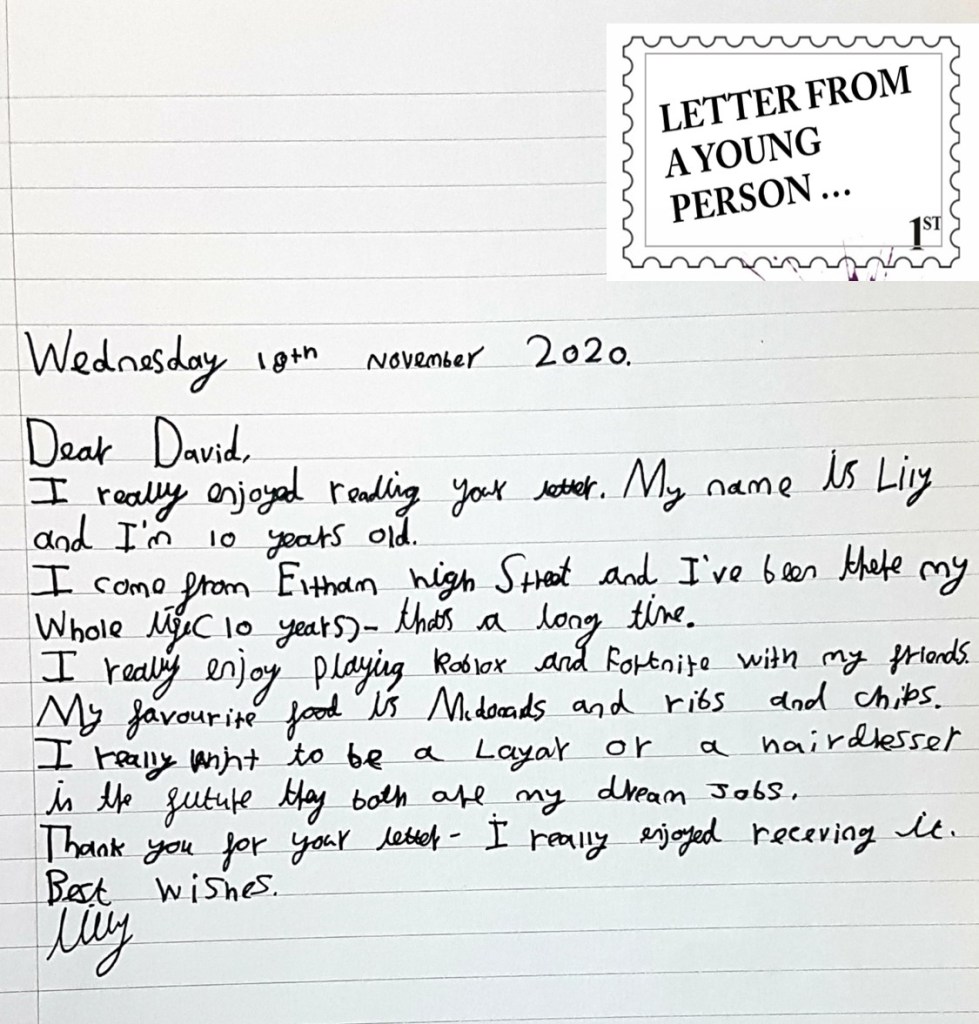 LETTER FROM
A YOUNG
PERSON ...
1ST
Wednesday 18th November 2020.
Dear David,
I really enjoyed reading your letter. My name is Lily
and I'm 10 years old.
I come from Eltham high Street and I've been there my
Whole life (10 years) - thats a long time.
I really enjoy playing Roblox and Fortnite with my friends.
My favourite food is Mcdonads and ribs and chips.
I really want to be a Layar or a hairdresser
in the future they both are my dream Jobs.
Thank you for your letter - I really enjoyed receving it.
Best wishes.
Lilly